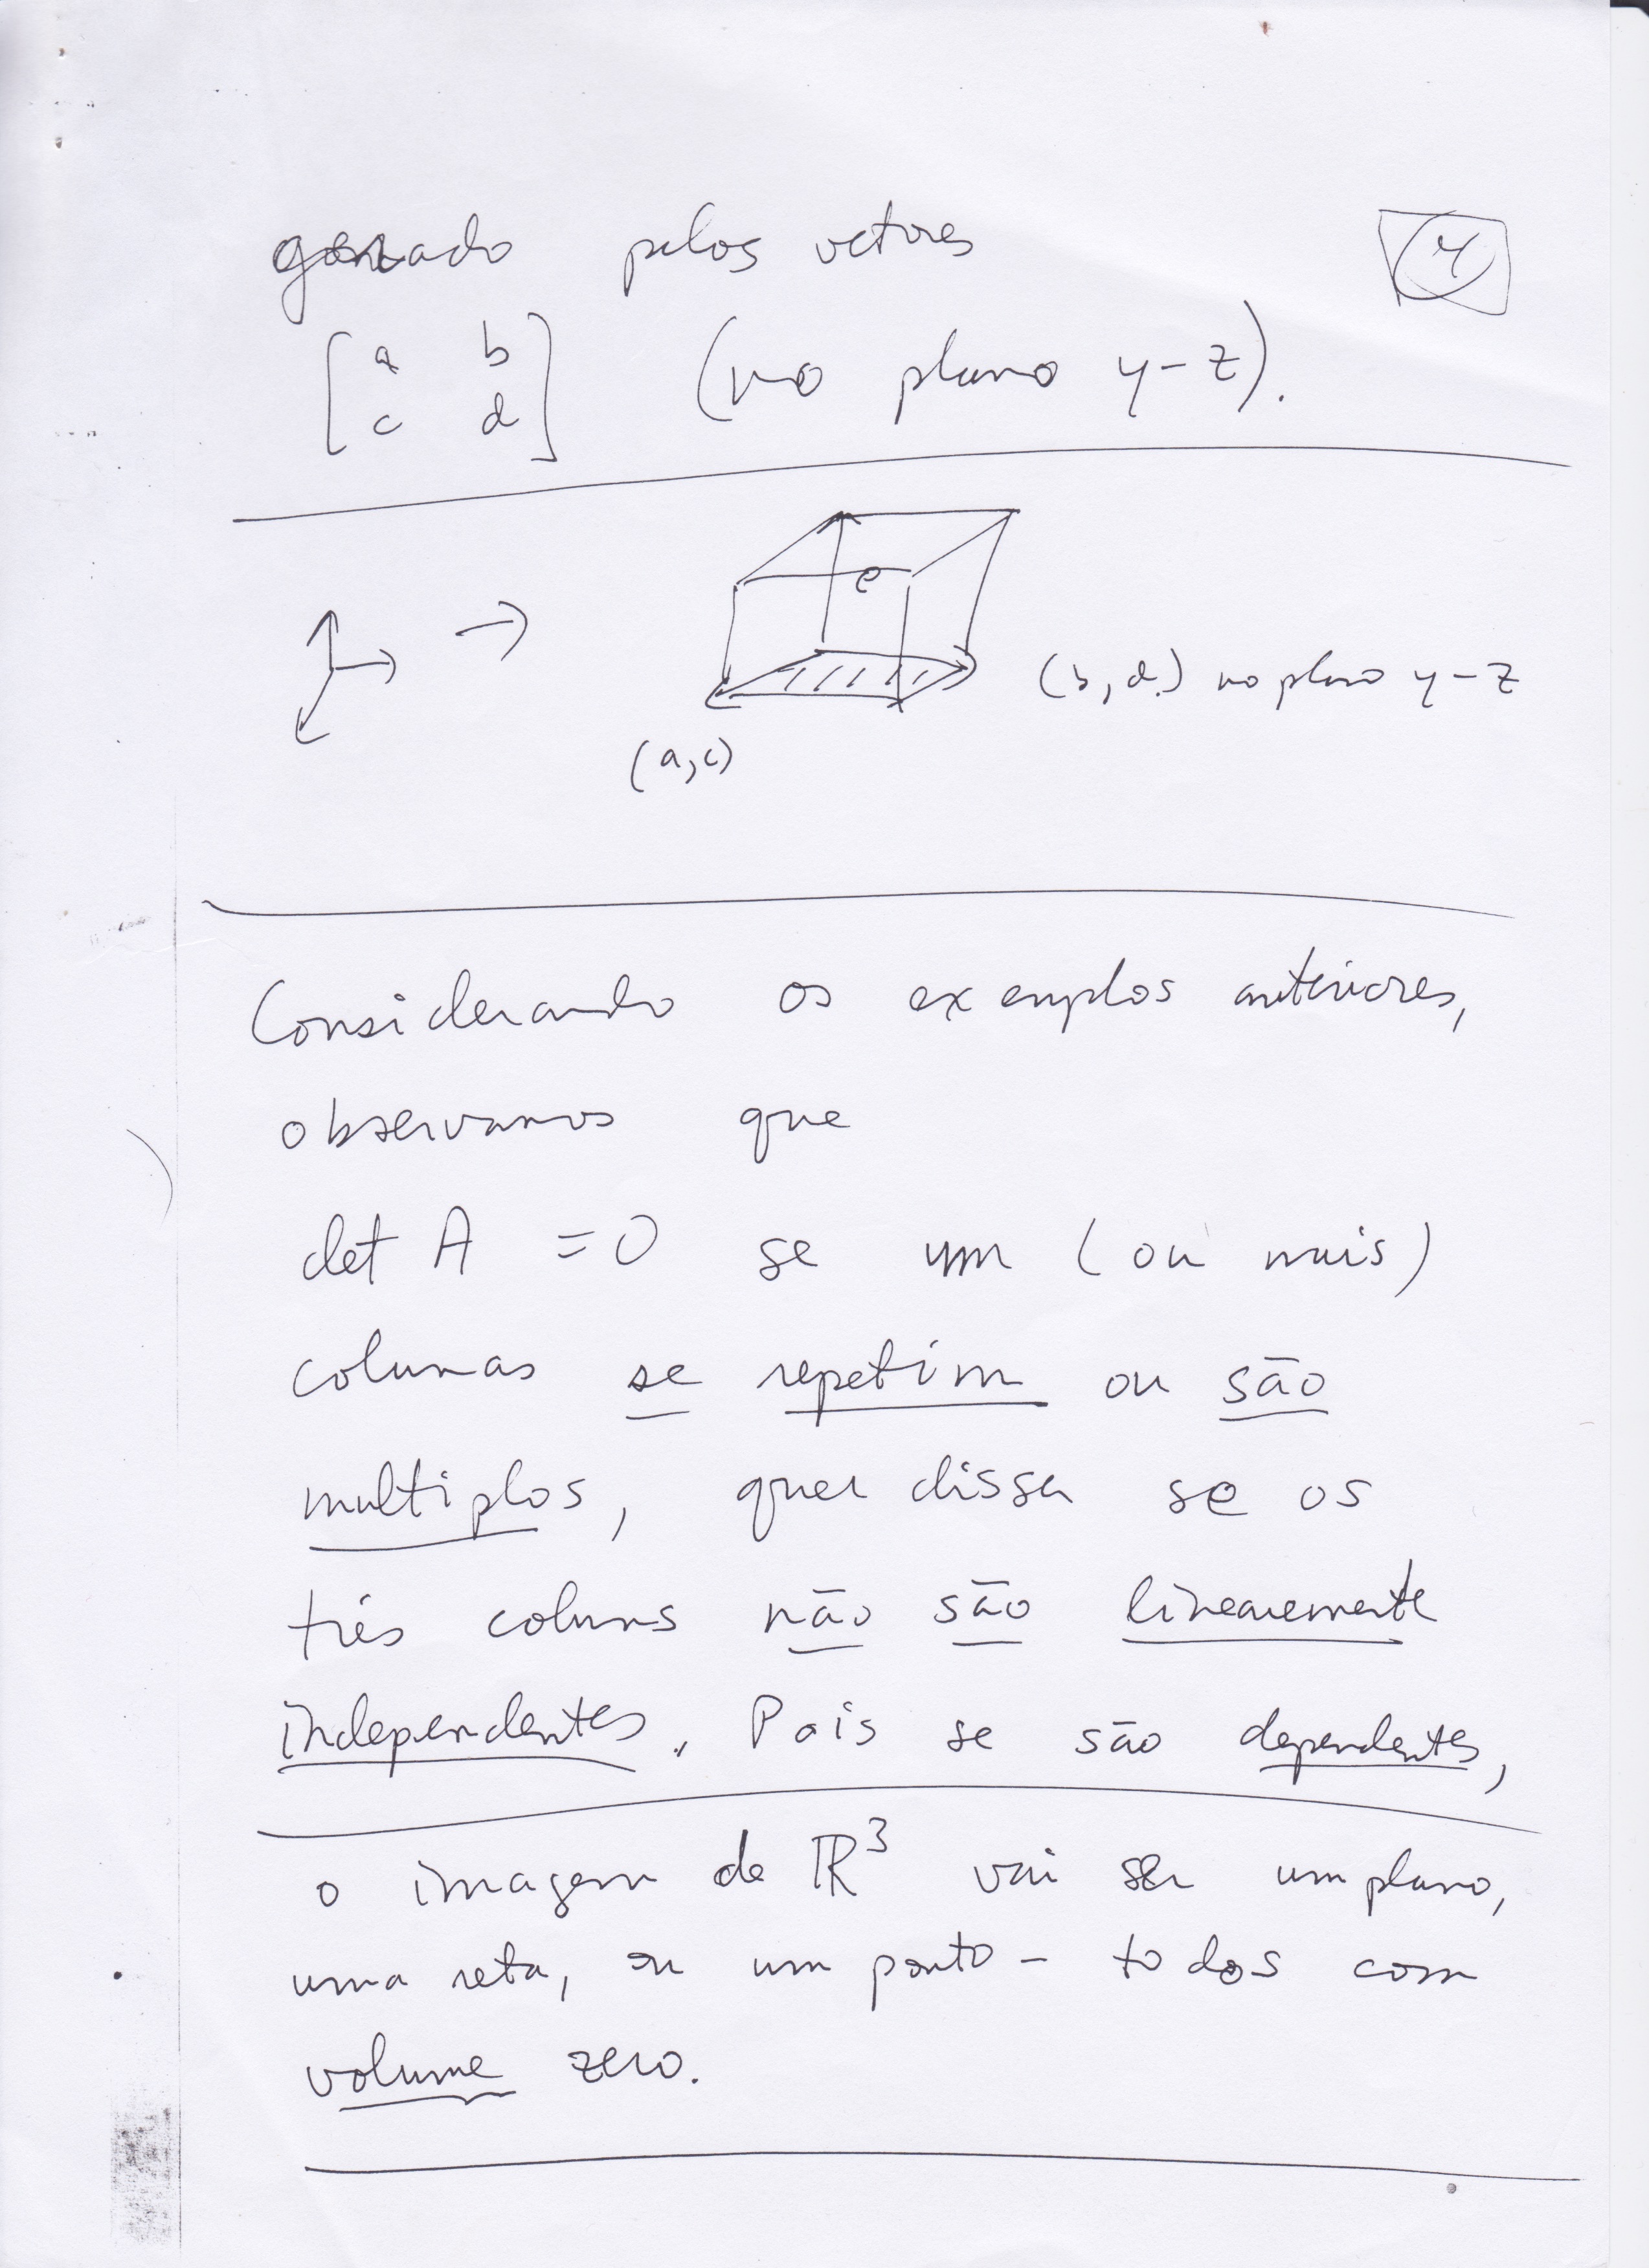 gerado pelos vetores
4
[a b
c d] (no plano y-z).
e
→ (b, d) no plano y-z
(a, c)
Considerando os exemplos anteriores,
observamos que
det A = 0 se um (ou mais)
colunas se repetim ou são
multiplos, quer dissa se os
três coluns não são linearemente
independentes. Pois se são dependentes,
o imagem de ℝ³ vai ser um plano,
uma reta, ou um ponto - todos com
volume zero.